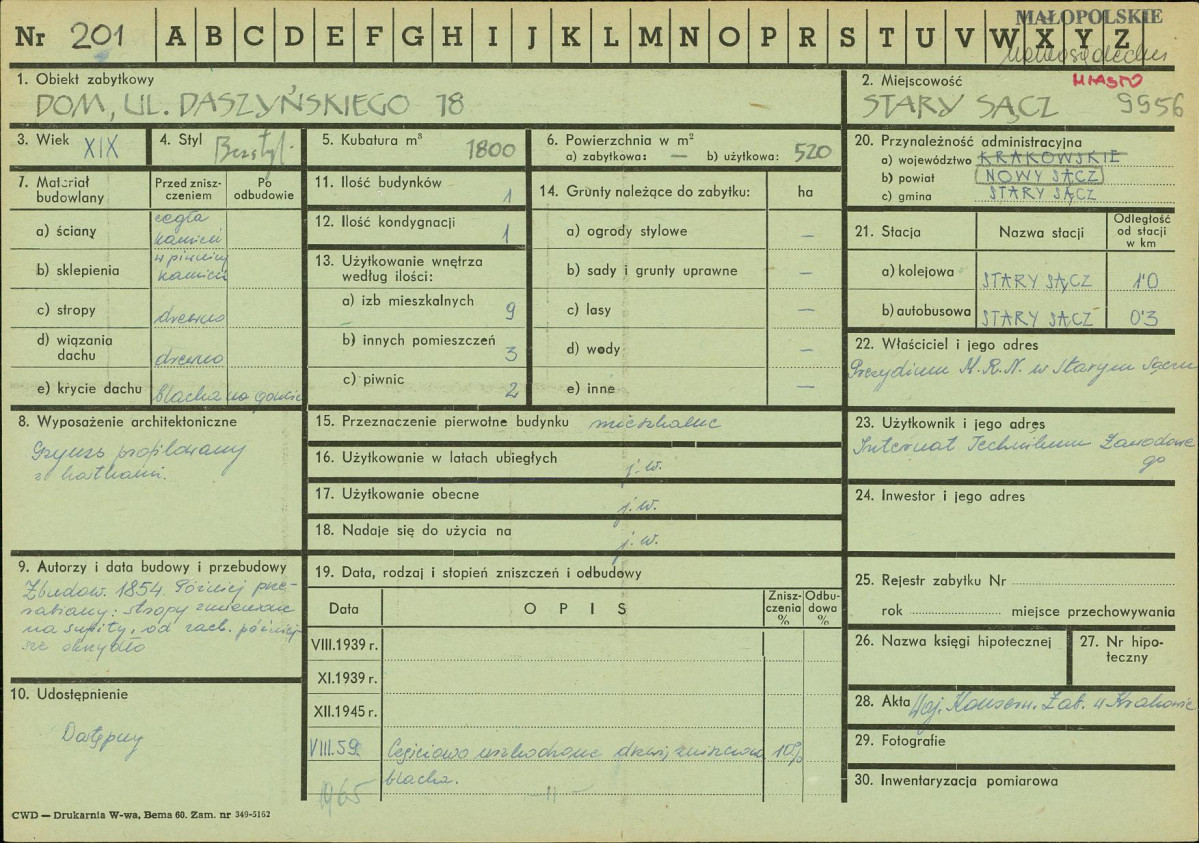 Nr 201 A B C D E F G H I J K L M N O P R S T U V W X Y Z
MAŁOPOLSKIE
nowosądeckie
1. Obiekt zabytkowy
DOM, UL. DASZYŃSKIEGO 18
2. Miejscowość MIASTO
STARY SĄCZ 9956
3. Wiek XIX
4. Styl Bezstyl.
5. Kubatura m³ 1800
6. Powierzchnia w m²
a) zabytkowa: — b) użytkowa: 520
7. Materiał budowlany
Przed zniszczeniem
Po odbudowie
a) ściany cegła kamień
b) sklepienia w piwnicy kamień
c) stropy drewno
d) wiązania dachu drewno
e) krycie dachu blacha na goncie
8. Wyposażenie architektoniczne
Gzyms profilowany
z kostkami.
9. Autorzy i data budowy i przebudowy
Zbudow. 1854. Później prze-
rabiany: stropy zmieniane
na sufity, od zach. później-
sze skrzydło
10. Udostępnienie
Dostępny
11. Ilość budynków 1
12. Ilość kondygnacji 1
13. Użytkowanie wnętrza
według ilości:
a) izb mieszkalnych 9
b) innych pomieszczeń 3
c) piwnic 2
14. Grunty należące do zabytku: ha
a) ogrody stylowe —
b) sady i grunty uprawne —
c) lasy —
d) wody —
e) inne —
15. Przeznaczenie pierwotne budynku mieszkalne
16. Użytkowanie w latach ubiegłych j.w.
17. Użytkowanie obecne j.w.
18. Nadaje się do użycia na j.w.
19. Data, rodzaj i stopień zniszczeń i odbudowy
Data OPIS Zniszczenia % Odbudowa %
VIII.1939 r.
XI.1939 r.
XII.1945 r.
VIII.59. Częściowo uszkodzone drzwi, zniszczona 10%
blacha.
1965 —"—
20. Przynależność administracyjna
a) województwo KRAKOWSKIE
b) powiat NOWY SĄCZ
c) gmina STARY SĄCZ
21. Stacja Nazwa stacji Odległość od stacji w km
a) kolejowa STARY SĄCZ 1'0
b) autobusowa STARY SĄCZ 0'3
22. Właściciel i jego adres
Prezydium M.R.N. w Starym Sączu
23. Użytkownik i jego adres
Internat Technikum Zawodowe
go
24. Inwestor i jego adres
25. Rejestr zabytku Nr
rok miejsce przechowywania
26. Nazwa księgi hipotecznej
27. Nr hipoteczny
28. Akta Woj. Konserw. Zab. w Krakowie
29. Fotografie
30. Inwentaryzacja pomiarowa
CWD — Drukarnia W-wa, Bema 60. Zam. nr 349-5162